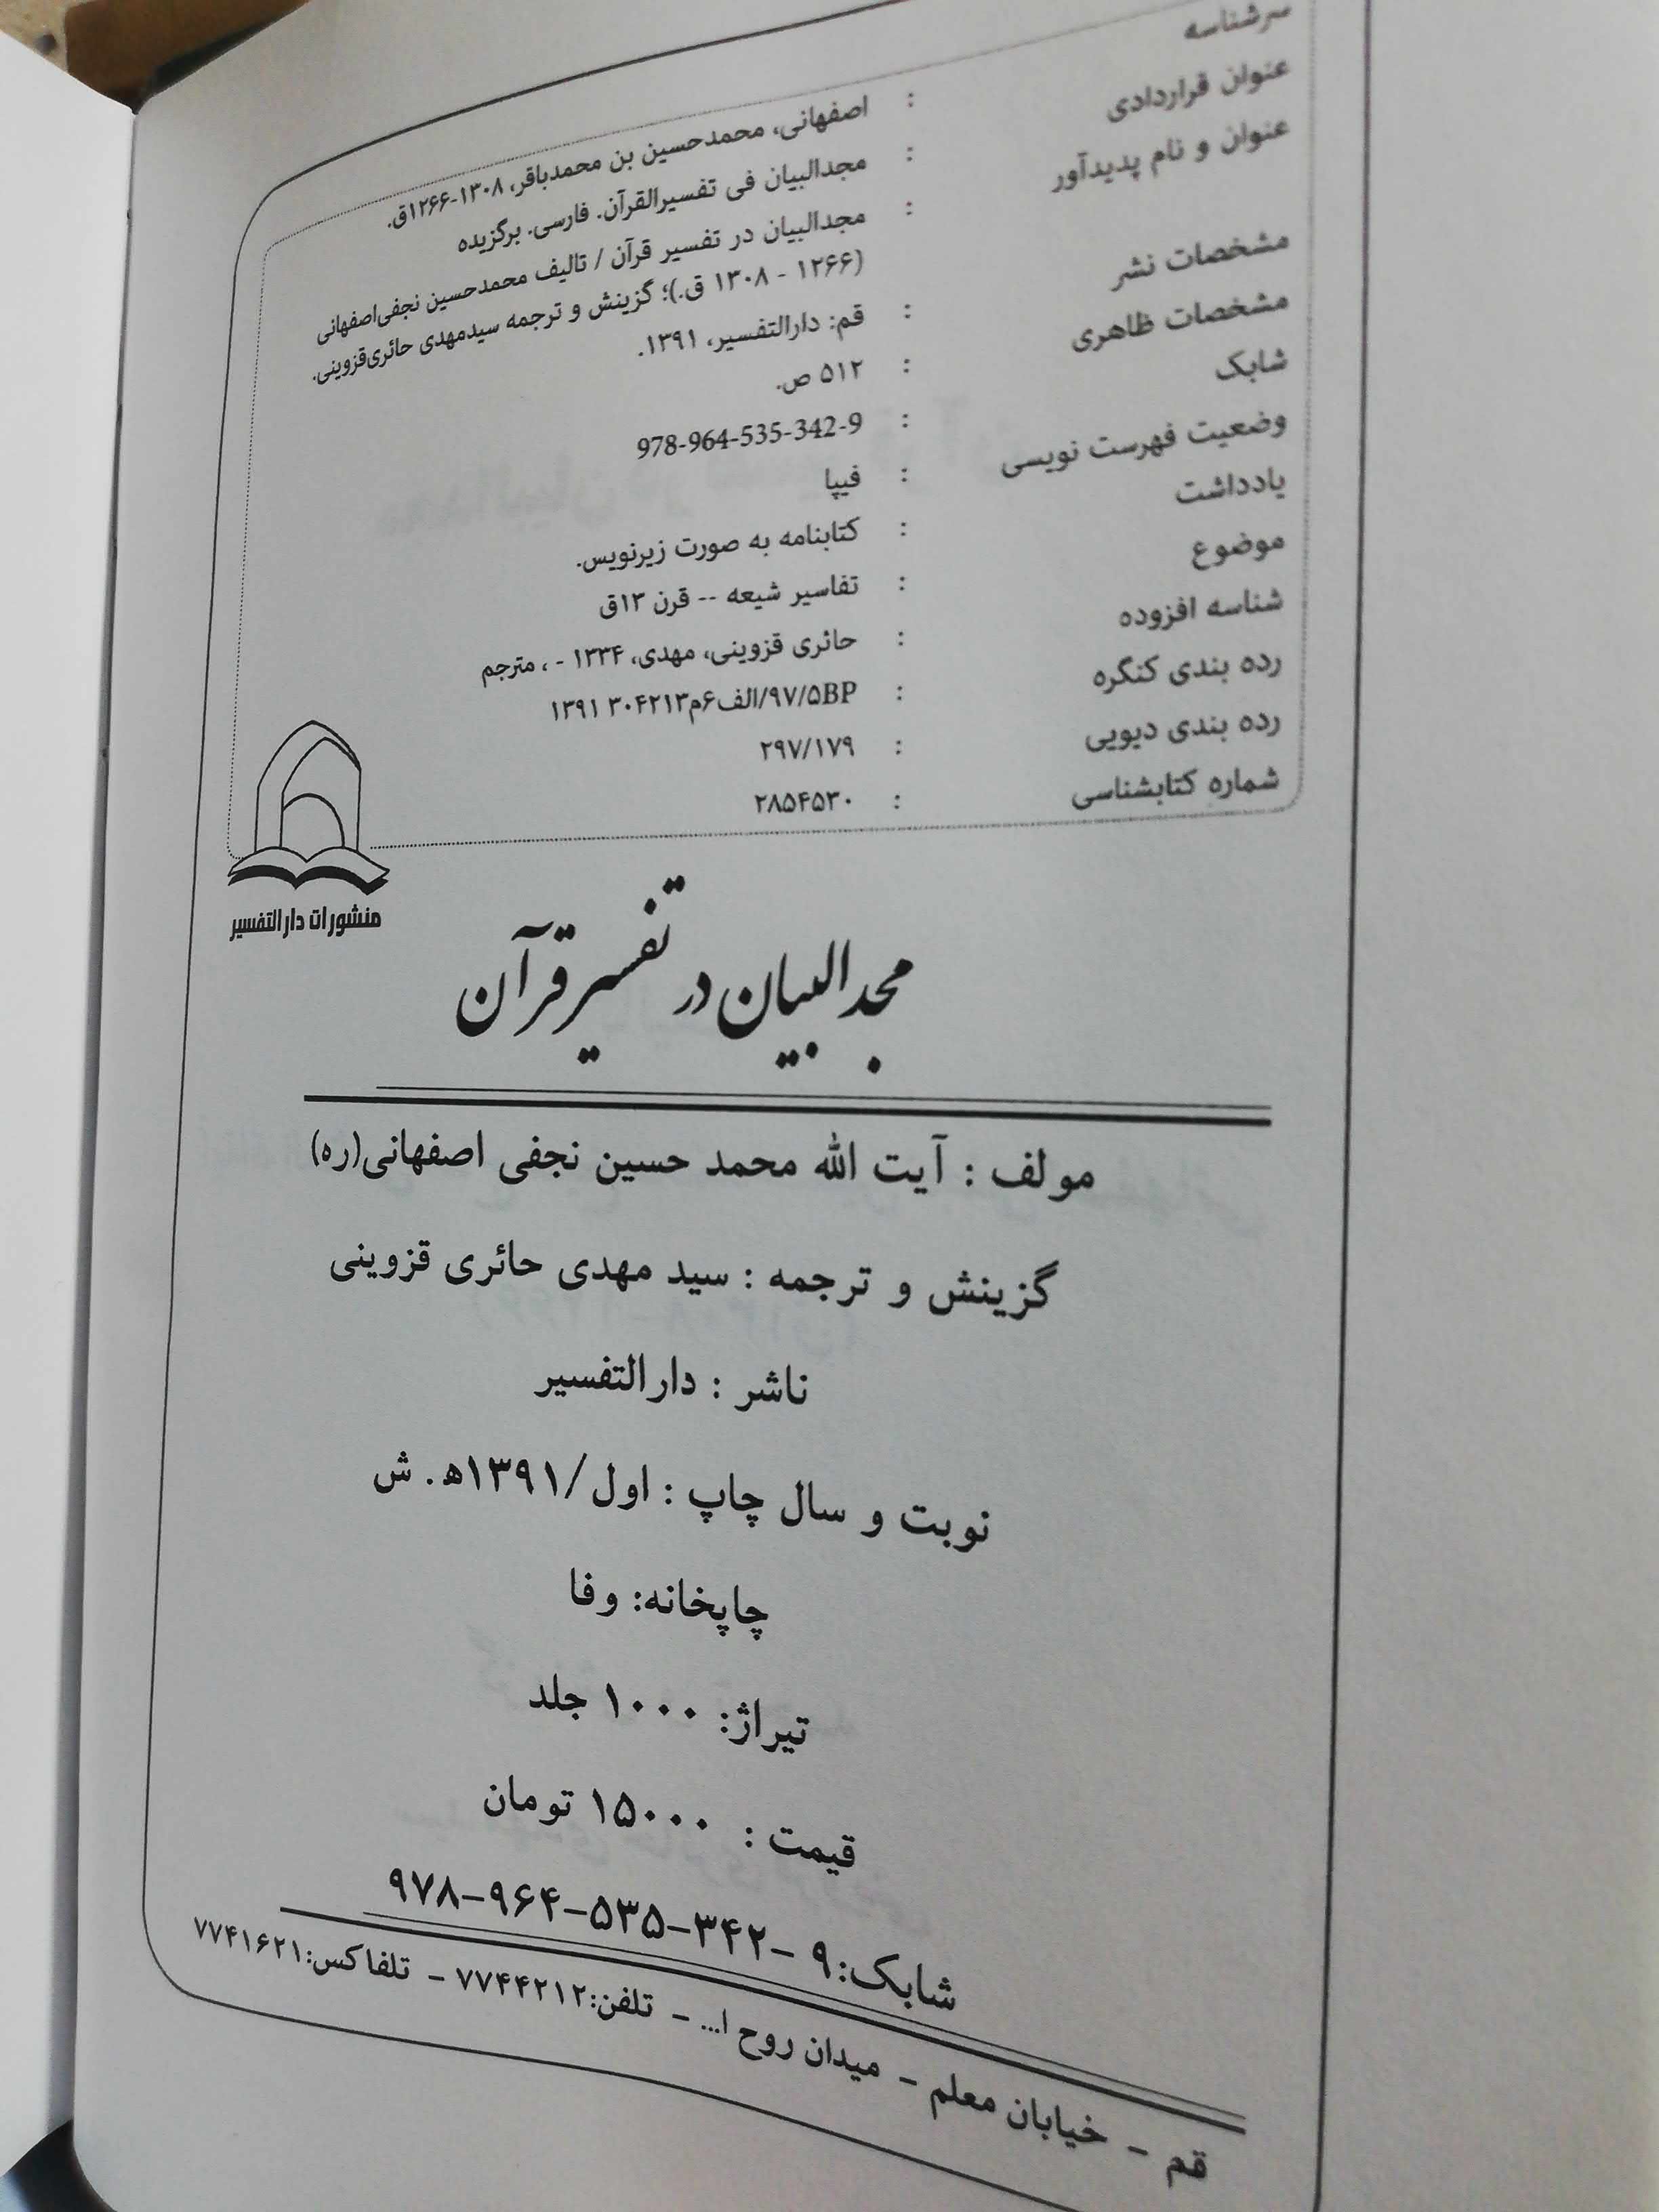 سرشناسه : اصفهانی، محمدحسین بن محمدباقر، ۱۳۰۸-۱۲۶۶ق.
عنوان قراردادی : مجدالبیان فی تفسیرالقرآن. فارسی. برگزیده
عنوان و نام پدیدآور : مجدالبیان در تفسیر قرآن / تالیف محمدحسین نجفی‌اصفهانی
(۱۲۶۶ - ۱۳۰۸ ق.)؛ گزینش و ترجمه سیدمهدی حائری‌قزوینی.
مشخصات نشر : قم: دارالتفسیر، ۱۳۹۱.
مشخصات ظاهری : ۵۱۲ ص.
شابک : 978-964-535-342-9
وضعیت فهرست نویسی : فیپا
یادداشت : کتابنامه به صورت زیرنویس.
موضوع : تفاسیر شیعه -- قرن ۱۳ق
شناسه افزوده : حائری قزوینی، مهدی، ۱۳۳۴ - ، مترجم
رده بندی کنگره : ۹۷/۵BP/الف۶م۳۰۴۲۱۳ ۱۳۹۱
رده بندی دیویی : ۲۹۷/۱۷۹
شماره کتابشناسی : ۲۸۵۴۵۳۰
منشورات دارالتفسیر
مجدالبیان در تفسیر قرآن
مولف : آیت الله محمد حسین نجفی اصفهانی(ره)
گزینش و ترجمه : سید مهدی حائری قزوینی
ناشر : دارالتفسیر
نوبت و سال چاپ : اول/۱۳۹۱ه‍. ش
چاپخانه: وفا
تیراژ: ۱۰۰۰ جلد
قیمت : ۱۵۰۰۰ تومان
شابک:۹ -۳۴۲-۵۳۵-۹۶۴-۹۷۸
قم - خیابان معلم - میدان روح ا... - تلفن:۷۷۴۴۲۱۲ - تلفاکس:۷۷۴۱۶۲۱